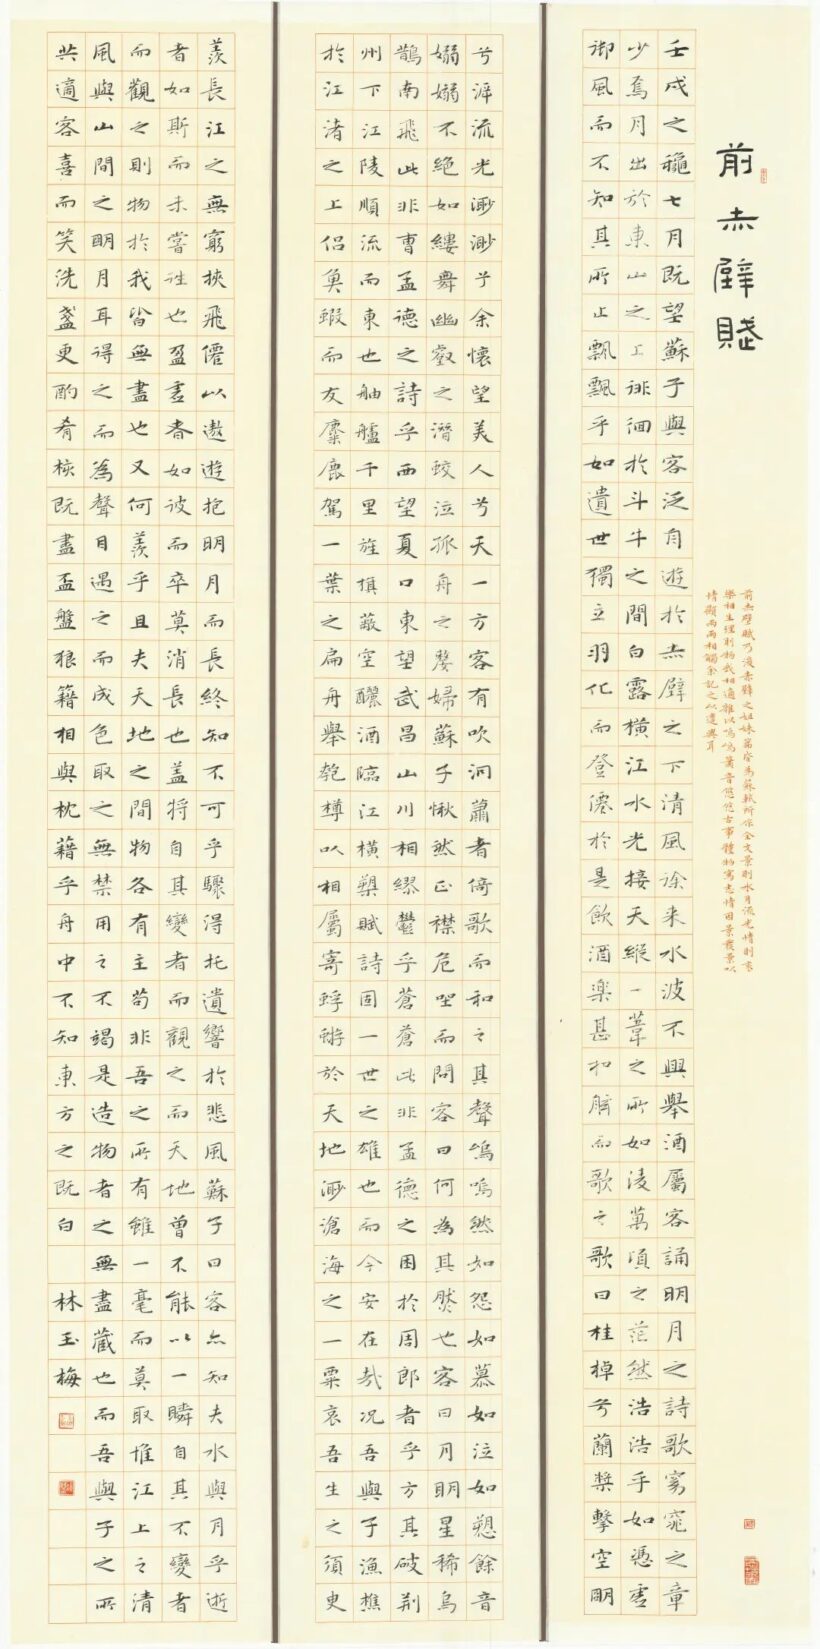 前赤壁賦
前赤壁賦乃後赤壁之姐妹篇皆為蘇軾所作全文景則水月流光情則哀
樂相生理則物我相適雜以嗚嗚簫音悠悠古事體物寫志情因景發景以
情顯兩兩相觸余記之以遣興耳
壬戌之穐七月既望蘇子與客泛舟遊於赤壁之下清風徐来水波不興舉酒屬客誦明月之詩歌窈窕之章
少焉月出於東山之上徘徊於斗牛之間白露横江水光接天縱一葦之所如淩萬頃之茫然浩浩乎如憑虛
御風而不知其所止飄飄乎如遺世獨立羽化而登僊於是飲酒楽甚扣舷而歌之歌曰桂棹兮蘭槳擊空明
兮泝流光渺渺兮余懷望美人兮天一方客有吹洞簫者倚歌而和之其聲嗚嗚然如怨如慕如泣如愬餘音
嫋嫋不絕如縷舞幽壑之潛蛟泣孤舟之嫠婦蘇子愀然正襟危坐而問客曰何為其然也客曰月明星稀烏
鵲南飛此非曹孟德之詩乎西望夏口東望武昌山川相繆鬱乎蒼蒼此非孟德之困於周郎者乎方其破荆
州下江陵順流而東也舳艫千里旌旗蔽空釃酒臨江横槊賦詩固一世之雄也而今安在哉况吾與子漁樵
於江渚之上侶魚蝦而友麋鹿駕一葉之扁舟舉匏樽以相屬寄蜉蝣於天地渺滄海之一粟哀吾生之須臾
羨長江之無窮挾飛僊以遨遊抱明月而長終知不可乎驟得托遺響於悲風蘇子曰客亦知夫水與月乎逝
者如斯而未嘗往也盈虛者如彼而卒莫消長也蓋將自其變者而觀之而天地曾不能以一瞬自其不變者
而觀之則物於我皆無盡也又何羨乎且夫天地之間物各有主苟非吾之所有雖一毫而莫取惟江上之清
風與山間之明月耳得之而為聲目遇之而成色取之無禁用之不竭是造物者之無盡藏也而吾與子之所
共適客喜而笑洗盞更酌肴核既盡盃盤狼籍相與枕藉乎舟中不知東方之既白 林玉梅